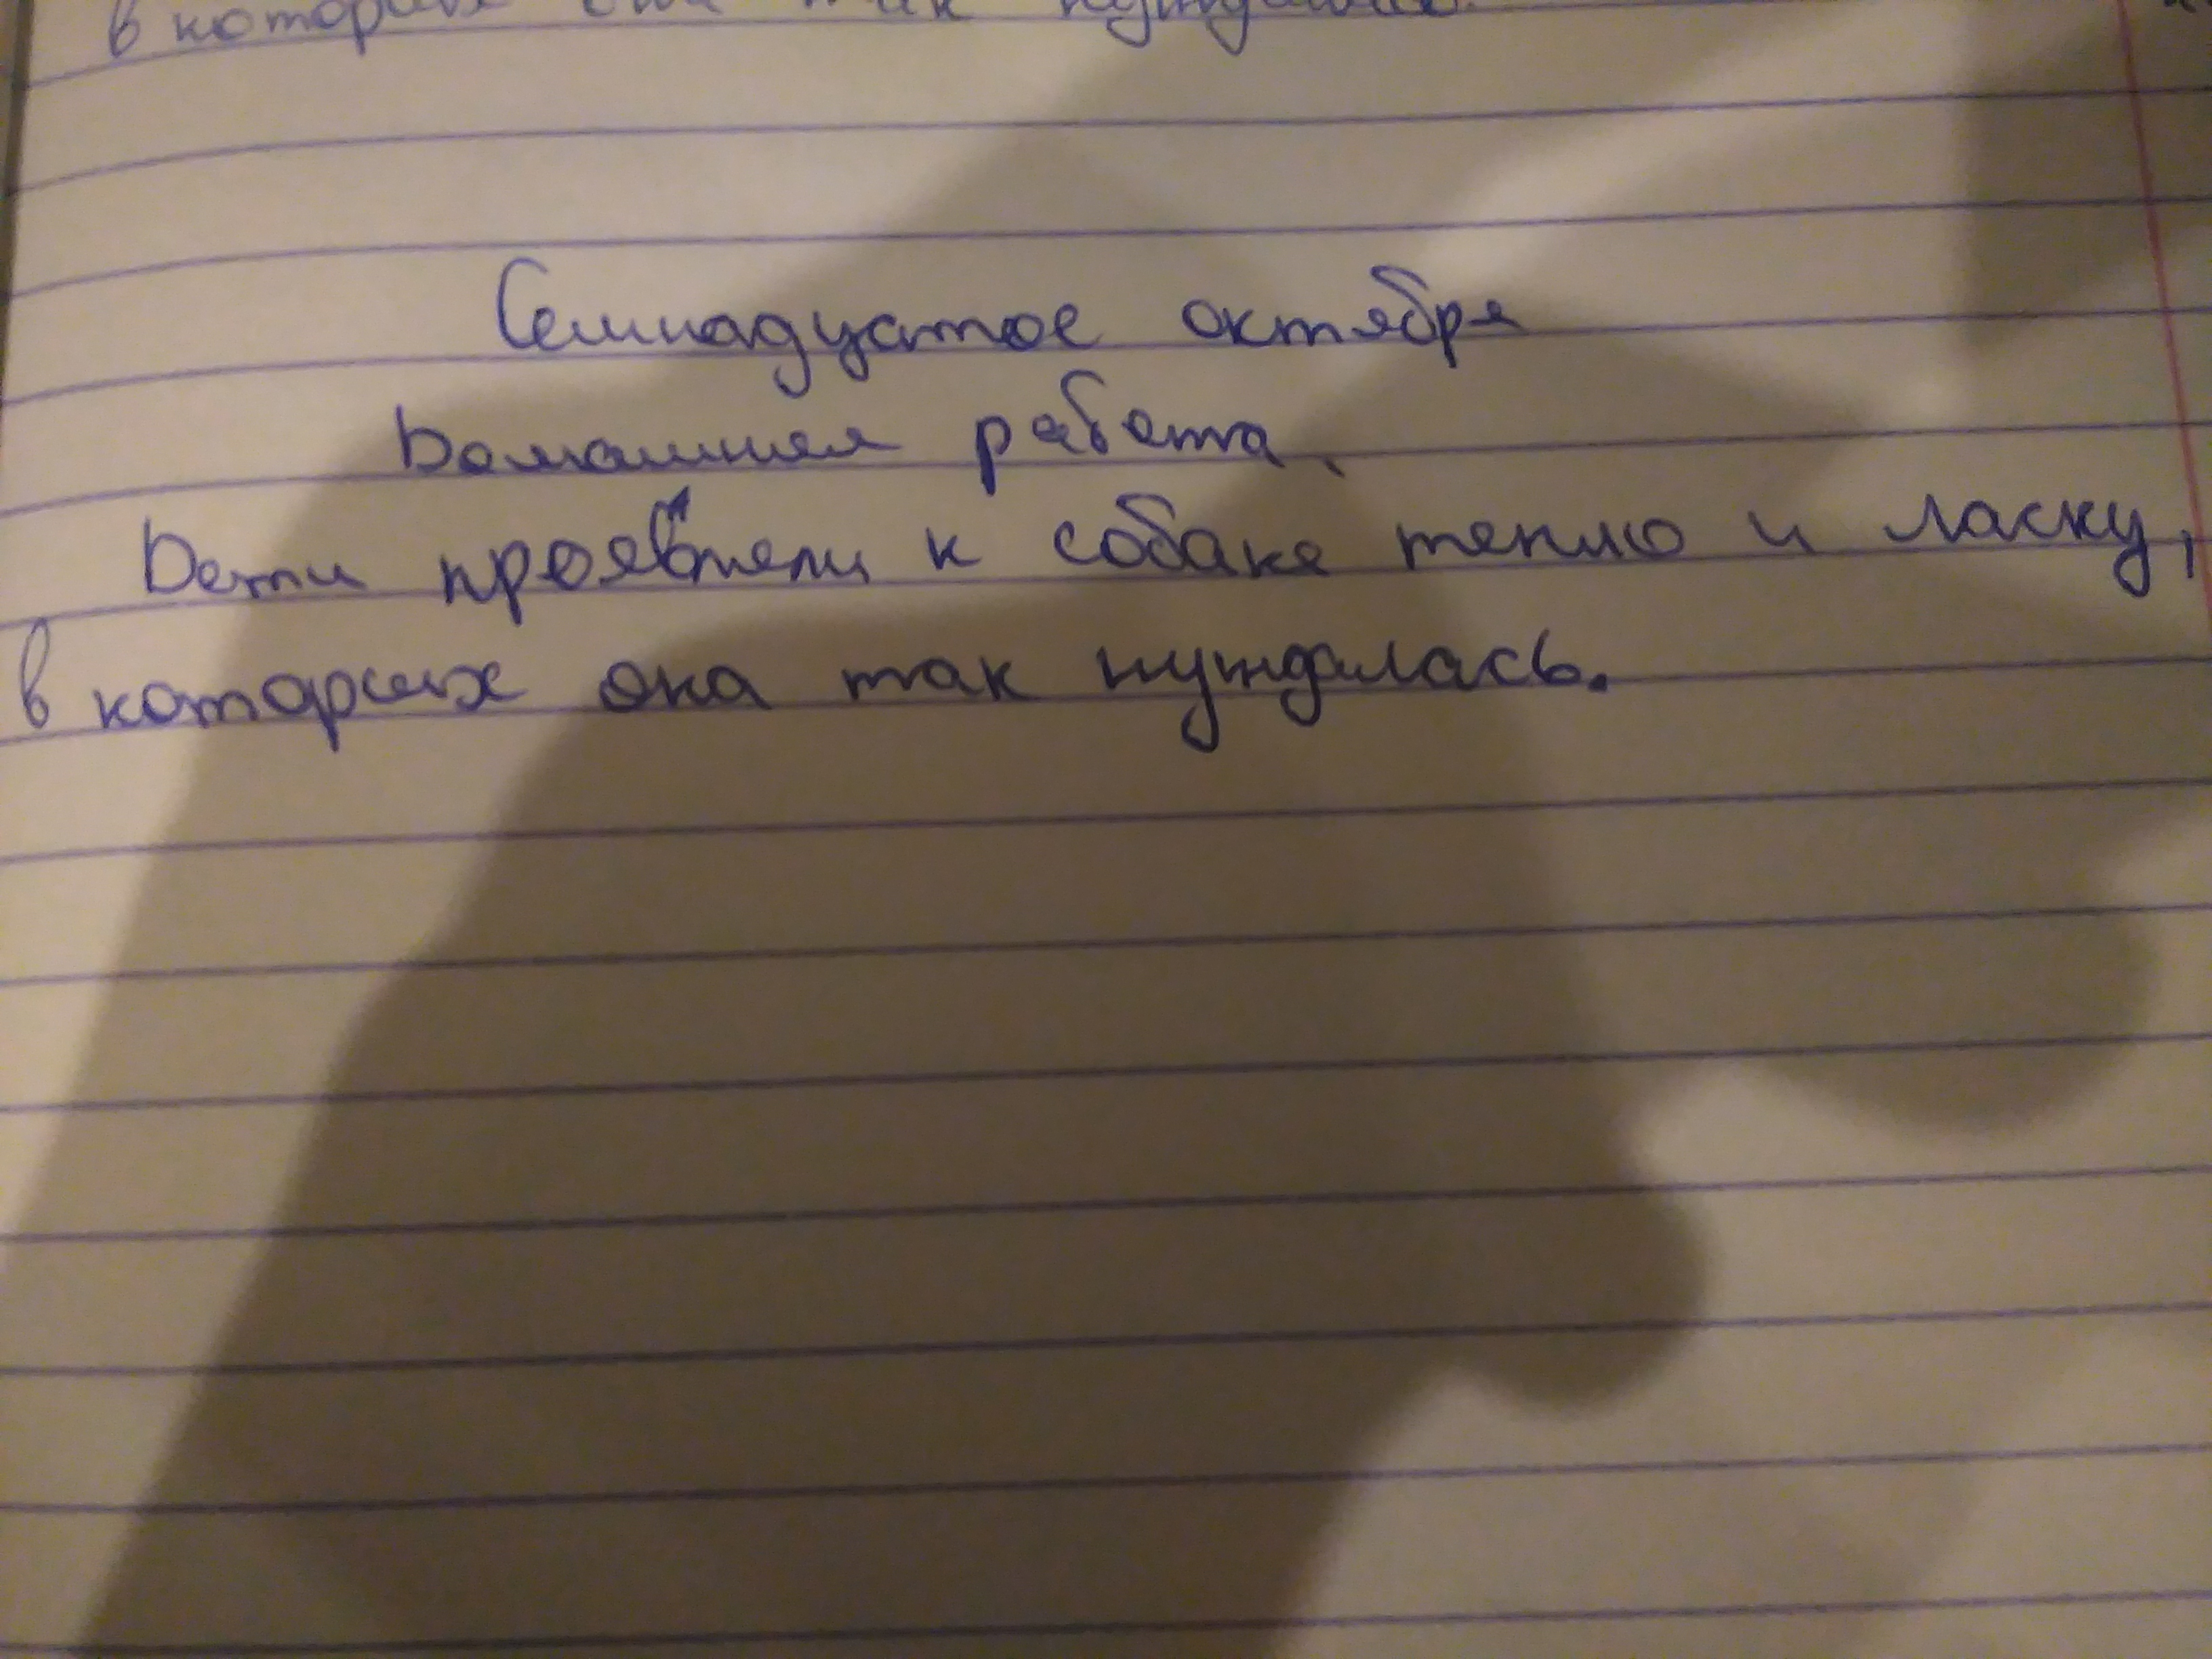 в которых она так нуждалась.
Семнадцатое октября
Домашняя работа.
Дети проявляли к собаке тепло и ласку,
в которых она так нуждалась.